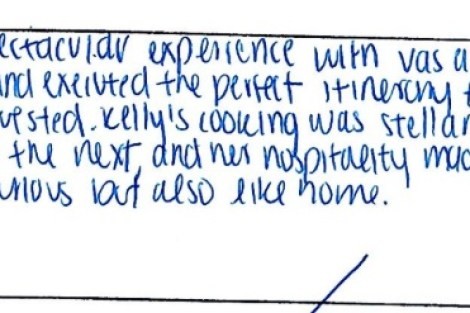 ectacular experience with vas a
and executed the perfect itinerary t
uested. Kelly's cooking was stellar
the next, and her hospitality mad
urious but also like home.